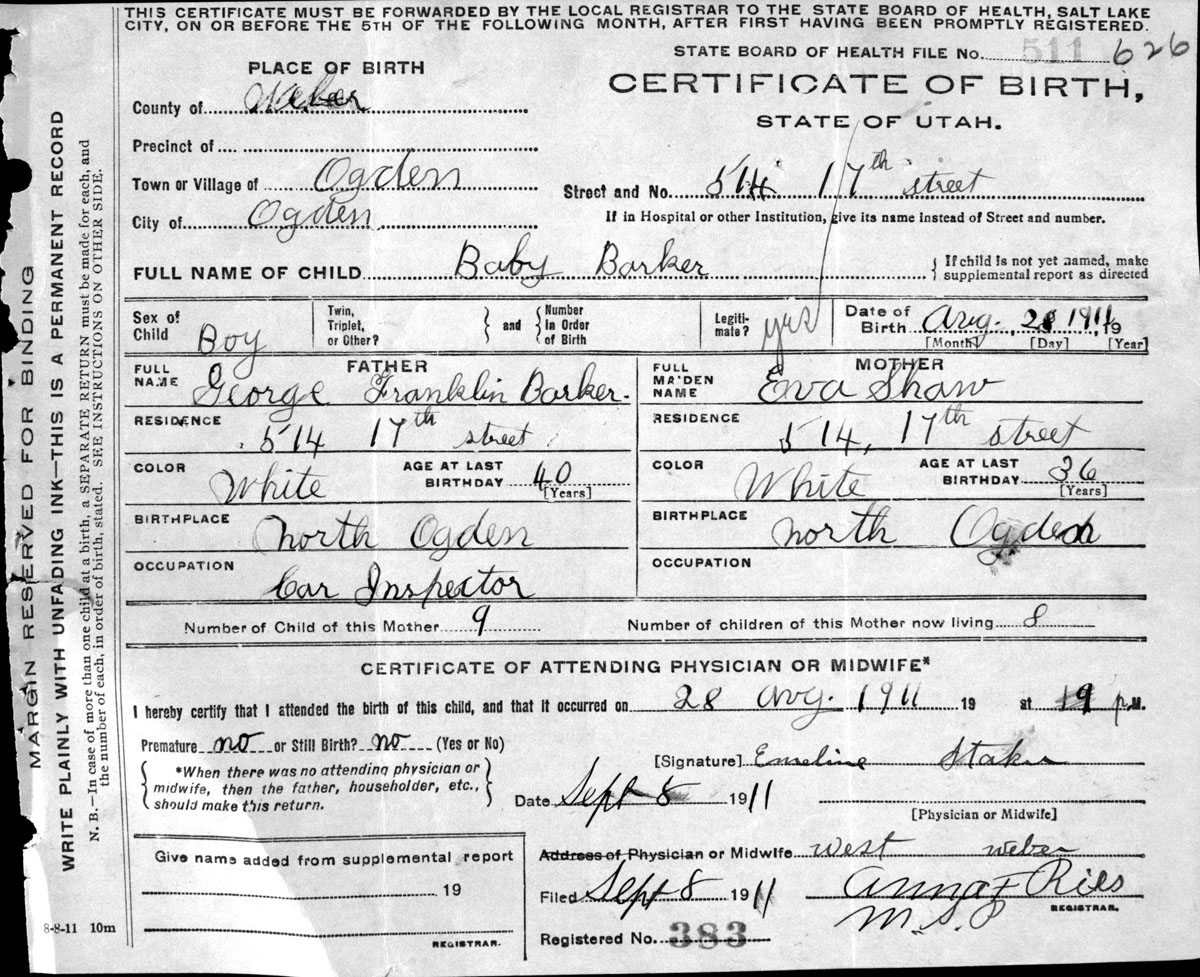 THIS CERTIFICATE MUST BE FORWARDED BY THE LOCAL REGISTRAR TO THE STATE BOARD OF HEALTH, SALT LAKE
CITY, ON OR BEFORE THE 5TH OF THE FOLLOWING MONTH, AFTER FIRST HAVING BEEN PROMPTLY REGISTERED.
STATE BOARD OF HEALTH FILE No. 511 626
PLACE OF BIRTH
CERTIFICATE OF BIRTH,
STATE OF UTAH.
County of Weber
Precinct of
Town or Village of Ogden
Street and No. 514 17th street
City of Ogden
If in Hospital or other Institution, give its name instead of Street and number.
FULL NAME OF CHILD Baby Barker
If child is not yet named, make
supplemental report as directed
Sex of Child Boy
Twin, Triplet, or Other?
and
Number In Order of Birth
Legiti-mate? yes
Date of Birth Aug. 28 1911 19
[Month] [Day] [Year]
FATHER
FULL NAME George Franklin Barker
RESIDENCE 514 17th street
COLOR White
AGE AT LAST BIRTHDAY 40 [Years]
BIRTHPLACE North Ogden
OCCUPATION Car Inspector
MOTHER
FULL MAIDEN NAME Eva Shaw
RESIDENCE 514, 17th street
COLOR White
AGE AT LAST BIRTHDAY 36 [Years]
BIRTHPLACE North Ogden
OCCUPATION
Number of Child of this Mother 9
Number of children of this Mother now living 8
CERTIFICATE OF ATTENDING PHYSICIAN OR MIDWIFE*
I hereby certify that I attended the birth of this child, and that it occurred on 28 Aug. 1911 19 at 9 p.M.
Premature no or Still Birth? no (Yes or No)
[Signature] Emeline Staker
*When there was no attending physician or
midwife, then the father, householder, etc.,
should make this return.
Date Sept 8 1911
[Physician or Midwife]
Address of Physician or Midwife West Weber
Give name added from supplemental report
19
REGISTRAR.
Filed Sept 8 1911
Anna F Ries
M.S.P
REGISTRAR.
Registered No. 383
8-8-11 10m
MARGIN RESERVED FOR BINDING
WRITE PLAINLY WITH UNFADING INK—THIS IS A PERMANENT RECORD
N. B.—In case of more than one child at a birth, a SEPARATE RETURN must be made for each, and
the number of each, in order of birth, stated. SEE INSTRUCTIONS ON OTHER SIDE.